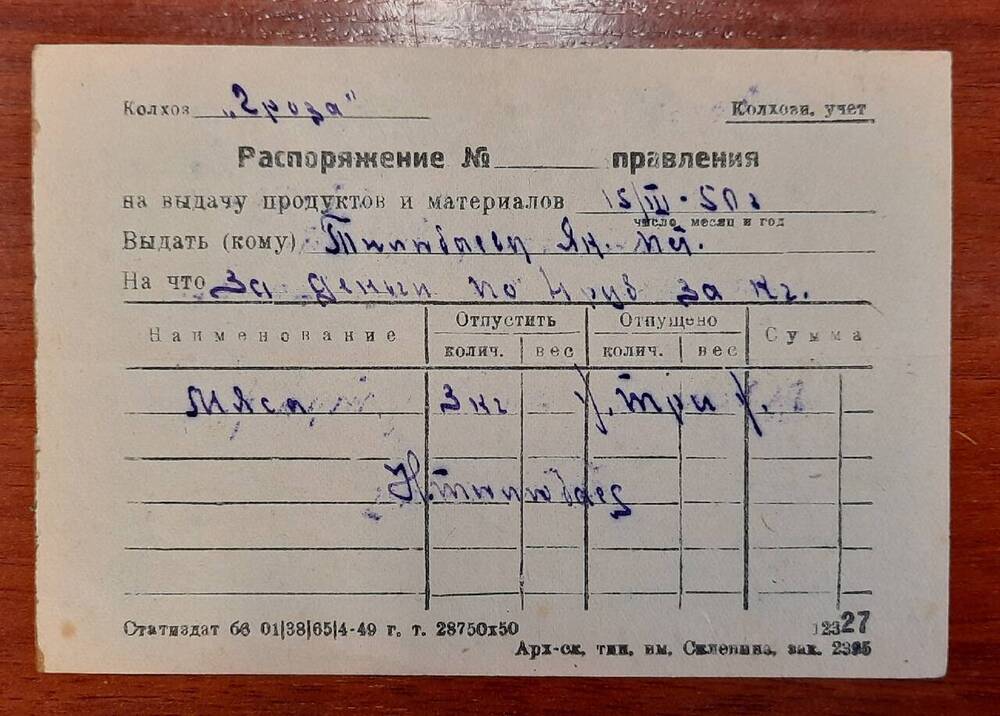 Колхоз „Гроза" Колхозн. учет
Распоряжение № правления
на выдачу продуктов и материалов 15/III-50 г
число, месяц и год
Выдать (кому) Ян.
На что за деньги по 4 руб за кг.
Наименование Отпустить Отпущено Сумма
колич. вес колич. вес
Мяса 3 кг /. три /.
Н.
Статиздат 66 01|38|65|4-49 г. т. 28750х50 12327
Арх-ск, тип. им. Склепина, зак. 2395